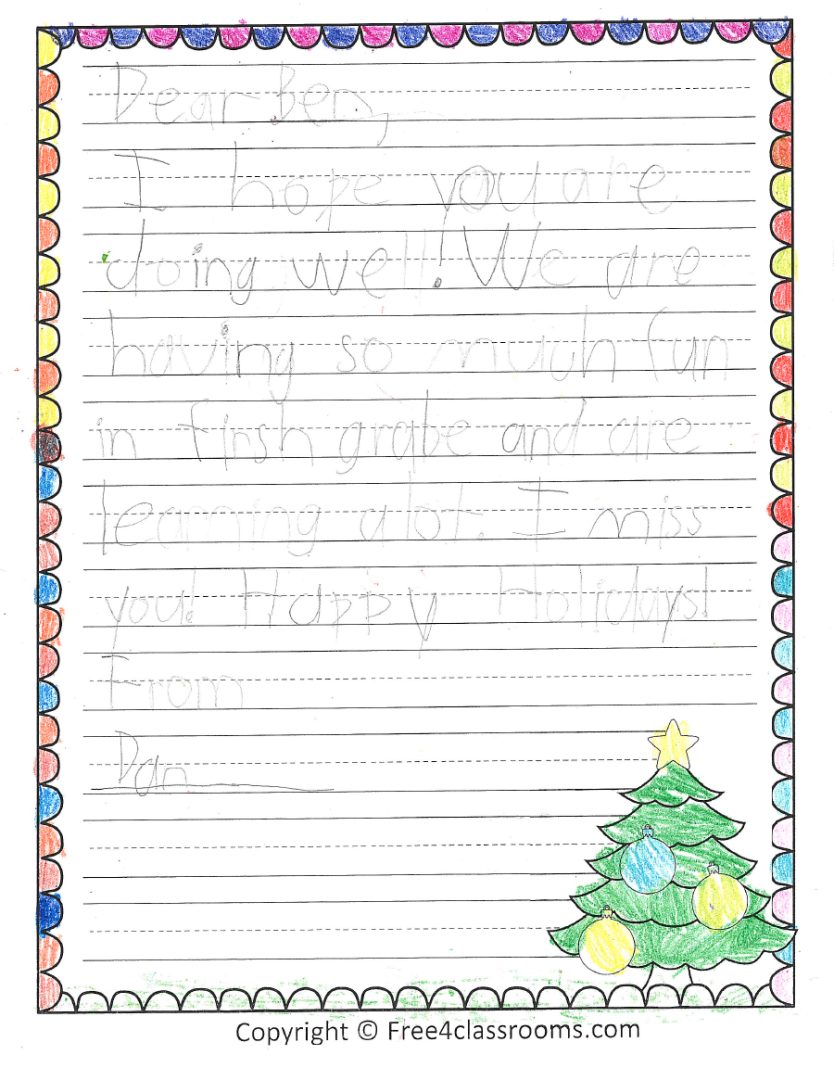 Dear Ben,
I hope you are
doing well! We are
having so much fun
in firsh grabe and are
learning alot. I miss
you! Happy Holidays!
From
Dan
Copyright © Free4classrooms.com